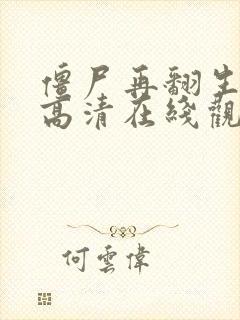 僵尸再翻生
高清在綫觀
何雲偉